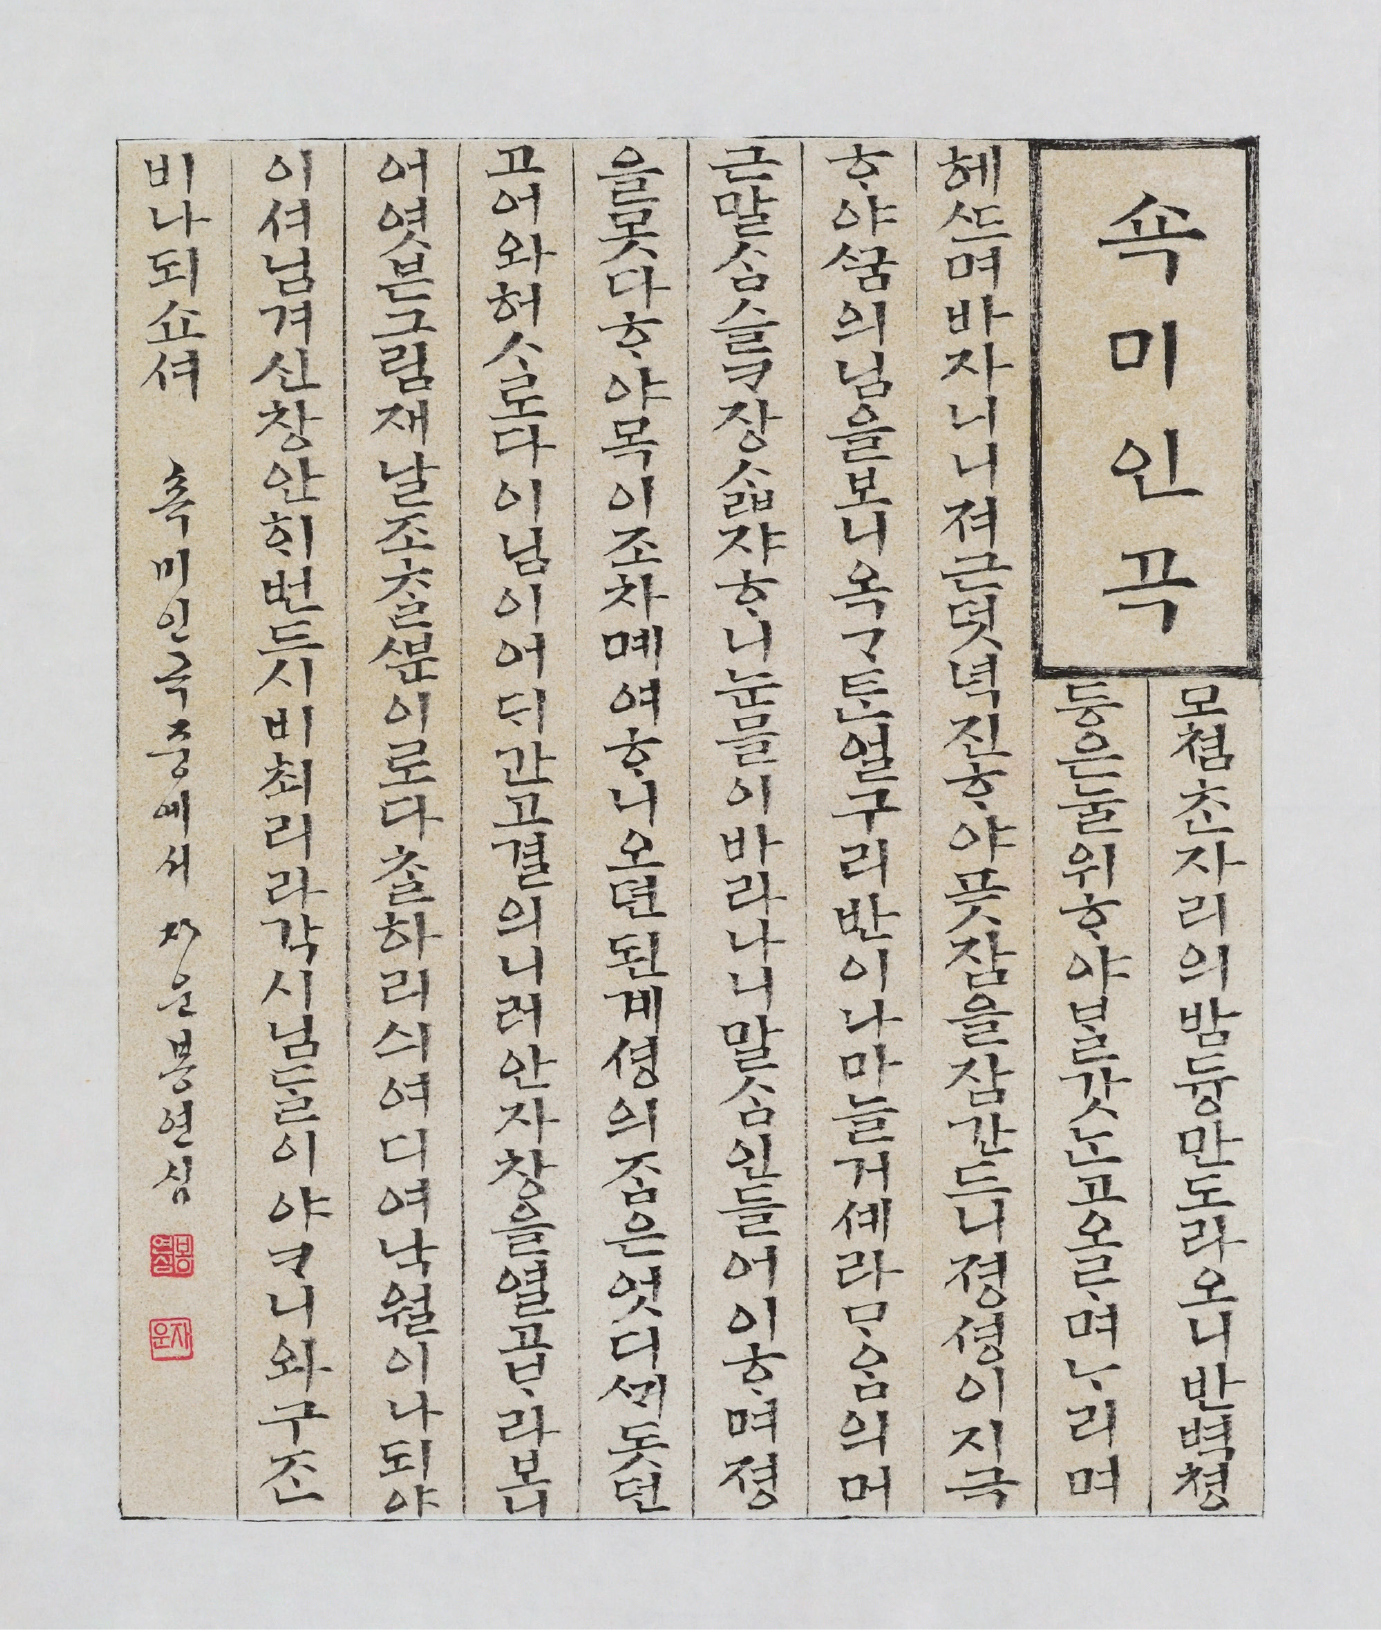 쇽미인곡
모쳠ᄎᆞᆫ자리의밤듕만도라오니반벽쳥
등은눌위ᄒᆞ야ᄇᆞᆯ갓ᄂᆞᆫ고오ᄅᆞ며ᄂᆞ리며
헤ᄯᅳ며바자니니져근덧녁진ᄒᆞ야픗잠을잠간드니졍셩이지극
ᄒᆞ야ᄭᅮᆷ의님을보니옥ᄀᆞᄐᆞᆫ얼구리반이나마늘거셰라ᄆᆞ음의머
근말ᄉᆞᆷ슬ᄏᆞ장ᄉᆞᆲ쟈ᄒᆞ니눈믈이바라나니말ᄉᆞᆷ인들어이ᄒᆞ며졍
을못다ᄒᆞ야목이조차몌여ᄒᆞ니오뎐된계셩의ᄌᆞᆷ은엇디ᄭᆡ돗던
고어와허ᄉᆞ로다이님이어ᄃᆡ간고결의니러안자창을열고ᄇᆞ라보니
어엿븐그림재날조ᄎᆞᆯᄲᅮᆫ이로다ᄎᆞᆯ하리싀여디여낙월이나되야
이셔님겨신창안ᄒᆡ번드시비최리라각시님ᄃᆞᆯ이야ᄏᆞ니와구ᄌᆞᆫ
비나되쇼셔 쇽미인곡중에서 자운봉연심
봉연심
자운